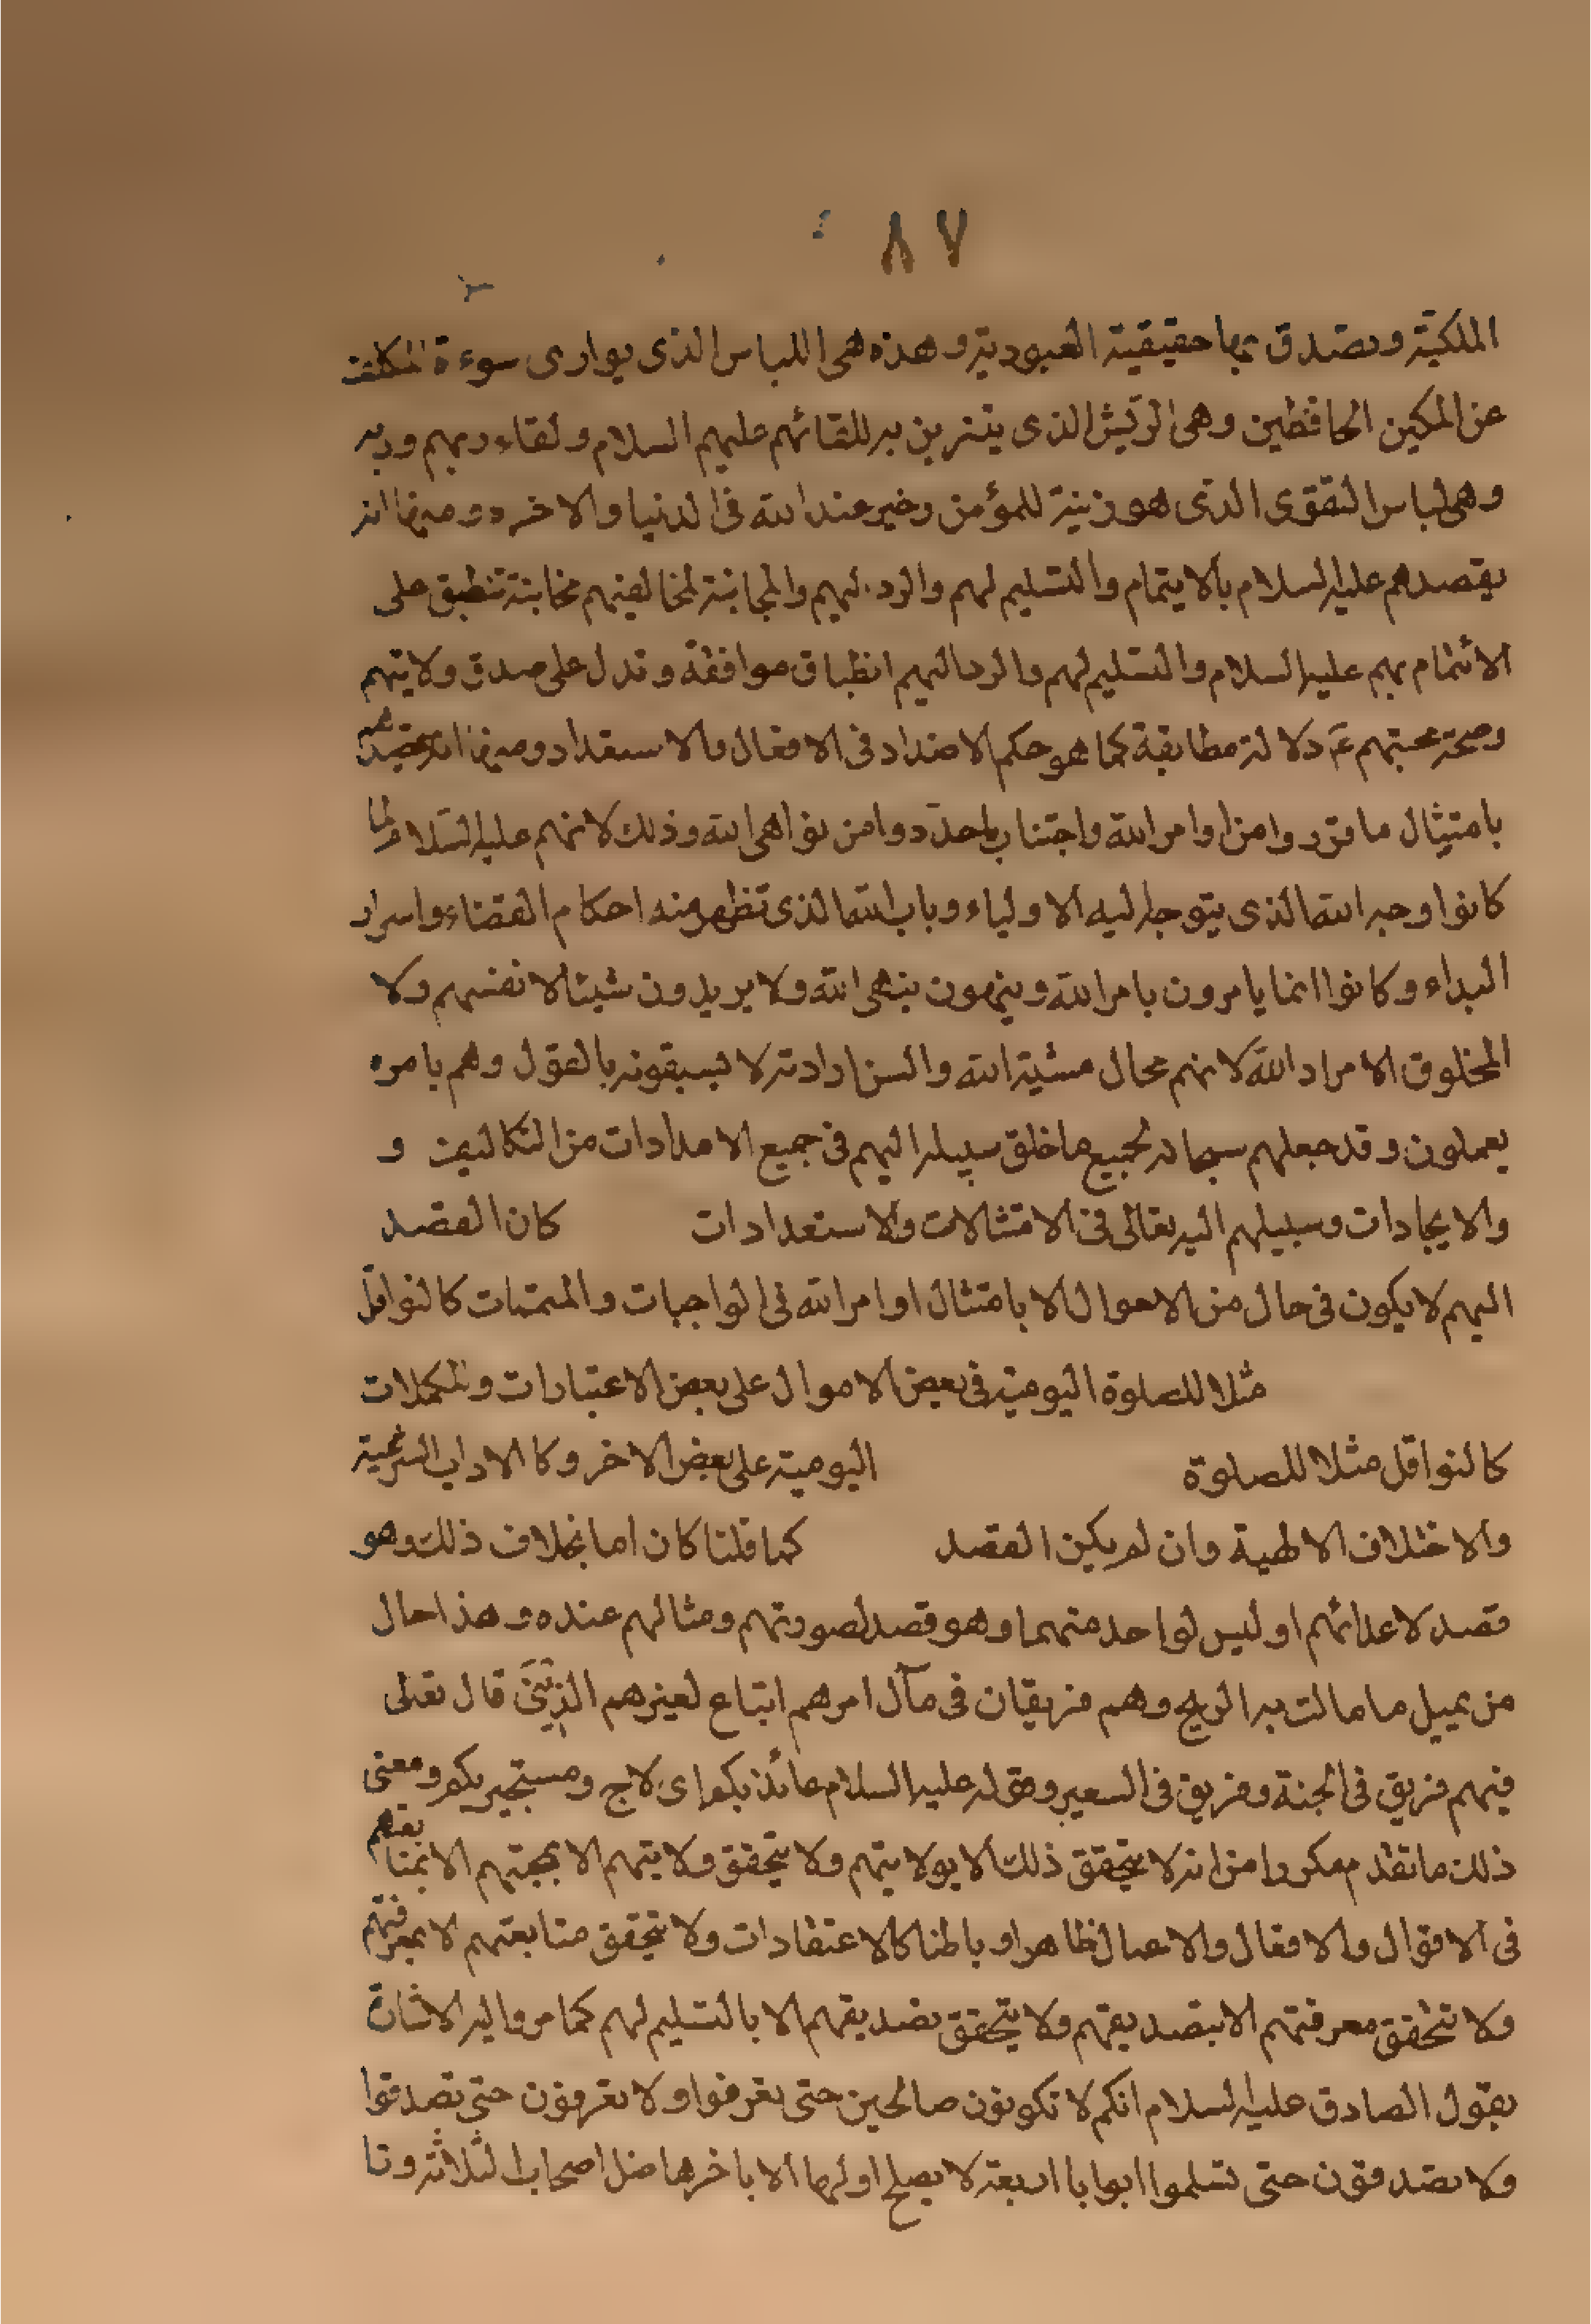 ٨٧
الملكية وتصدق بها حقيقية العبودية وهذه هى اللباس الذى يوارى سوءة المكلف
عن الملكين الحافظين وهى الريش الذى يتزين به للقائهم عليهم السلام ولقاء ربهم وربه
وهى لباس التقوى الذى هو زينة للمؤمن وخير عند الله فى الدنيا والاخرة ومنها انه
يقصدهم عليه السلام بالايتمام والتسليم لهم والرد اليهم والمجانبة لمخالفيهم مجانبة تنطبق على
الائتمام بهم عليه السلام والتسليم لهم والرد اليهم انطباق موافقة وتدل على صدق ولايتهم
وصحة محبتهم ع دلالة مطابقة كما هو حكم الاضداد فى الافعال والاستعداد ومنها انه يقصدهم
بامتيثال ما قرروا من اوامر الله واجتناب ما حددوا من نواهى الله وذلك لانهم عليه السلام لما
كانوا وجه الله الذى يتوجه اليه الاولياء وباب الله الذى تظهر منه احكام القضاء واسرار
البداء وكانوا انما يامرون بامر الله وينهون بنهى الله ولا يريدون شيئا لانفسهم ولا
المخلوق الا مراد الله لانهم محال مشية الله والسن ارادته لا يسبقونه بالقول وهم بامره
يعملون وقد جعلهم سبحانه لجميع ما خلق سبيله اليهم فى جميع الامدادات من التكاليف و
والايجادات وسبيلهم اليه تعالى فى الامتثالات والاستعدادات كان القصد
اليهم لا يكون فى حال من الاحوال الا بامتثال اوامر الله فى الواجبات والمتممات كالنوافل
مثلا للصلوة اليومية فى بعض الاموال على بعض الاعتبارات والمكملات
كالنوافل مثلا للصلوة اليومية على بعض الاخر وكالاداب الشرعية
والاختلاف الالهية وان لم يكن القصد كما قلنا كان اما بخلاف ذلك وهو
قصد لاعدائهم او ليس لواحد منهما وهو قصد لصورتهم ومثالهم عنده وهذا حال
من يميل ما مالت به الريح وهم فريقان فى مآل امرهم اتباع لغيرهم الذين قال تعالى
فيهم فريق فى الجنة وفريق فى السعير وقوله عليه السلام عائذ بكم اى لاج ومستجير بكم ومعنى
ذلك ما تقدم مكررا من انه لا يتحقق ذلك الا بولايتهم ولا يتحقق ولايتهم الا بمحبتهم الا بمتابعتهم
فى الاقوال والافعال والاعمال ظاهرا وباطنا كالاعتقادات ولا يتحقق متابعتهم لا بمعرفتهم
ولا تتحقق معرفتهم الا بتصديقهم ولا يتحقق تصديقهم الا بالتسليم لهم كما مر واليه الاشارة
بقول الصادق عليه السلام انكم لا تكونون صالحين حتى تعرفوا ولا تعرفون حتى تصدقوا
ولا تصدقون حتى تسلموا ابوابا اربعة لا يصلح اولها الا باخرها ضل اصحاب الثلاثة وتا